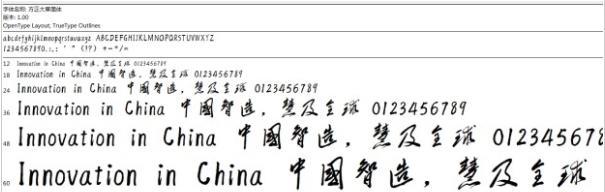 字体名称: 方正大草简体
版本: 1.00
OpenType Layout, TrueType Outlines
abcdefghijklmnopqrstuvwxyz ABCDEFGHIJKLMNOPQRSTUVWXYZ
1234567890.:,; ' " (!?) +-*/=
12 Innovation in China 中國智造，慧及全球 0123456789
18 Innovation in China 中國智造，慧及全球 0123456789
24 Innovation in China 中國智造，慧及全球 0123456789
36 Innovation in China 中國智造，慧及全球 0123456789
48 Innovation in China 中國智造，慧及全球 012345678
60 Innovation in China 中國智造，慧及全球